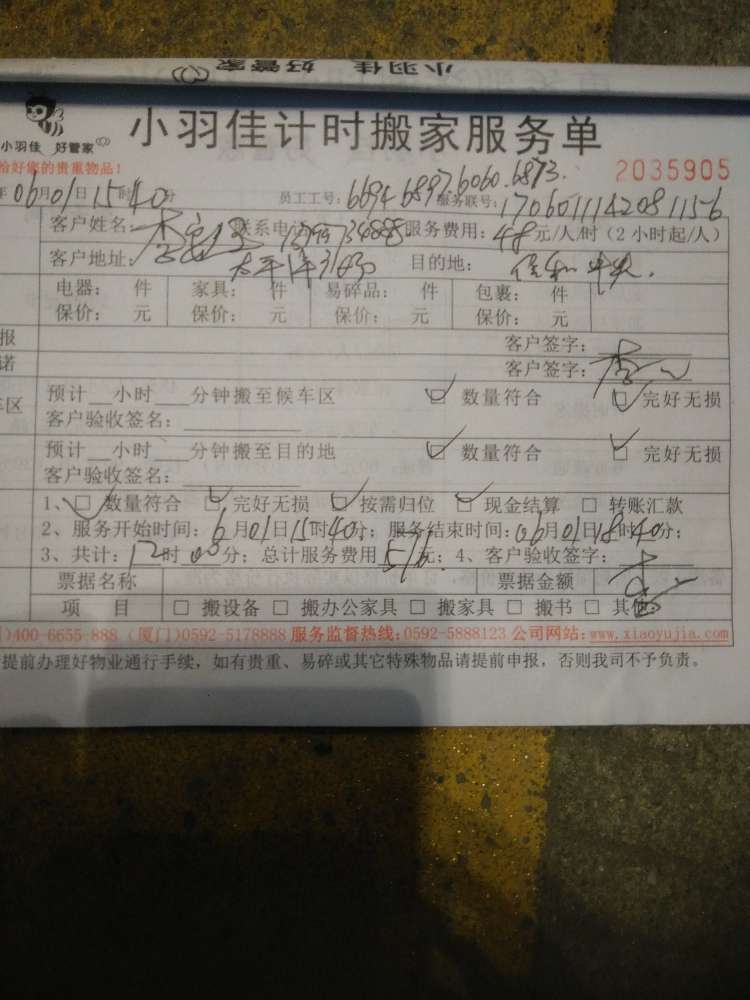 小羽佳 好管家
小羽佳 好管家
小羽佳计时搬家服务单
恰好您的贵重物品！
2035905
年06月01日15时40分 员工工号：6694 6897 6060.6873. 服务联号：1706011142081156
客户姓名：李 联系电 服务费用：48元/人/时（2小时起/人）
客户地址：太平洋 目的地：佳和中央.
电器： 件 家具： 件 易碎品： 件 包裹： 件
保价： 元 保价： 元 保价： 元 保价： 元
报 客户签字：
诺 客户签字：李
车区 预计__小时___分钟搬至候车区 □ 数量符合 □ 完好无损
客户验收签名：
预计__小时___分钟搬至目的地 □ 数量符合 □ 完好无损
客户验收签名：
1、□ 数量符合 □ 完好无损 □ 按需归位 □ 现金结算 □ 转账汇款
2、服务开始时间：6月01日15时40分；服务结束时间：06月01日18时40分；
3、共计：12时00分；总计服务费用 元；4、客户验收签字：李
票据名称 票据金额
项 目 □ 搬设备 □ 搬办公家具 □ 搬家具 □ 搬书 □ 其他
)400-6655-888（厦门)0592-5178888 服务监督热线:0592-5888123 公司网站:www.xiaoyujia.com
提前办理好物业通行手续，如有贵重、易碎或其它特殊物品请提前申报，否则我司不予负责。